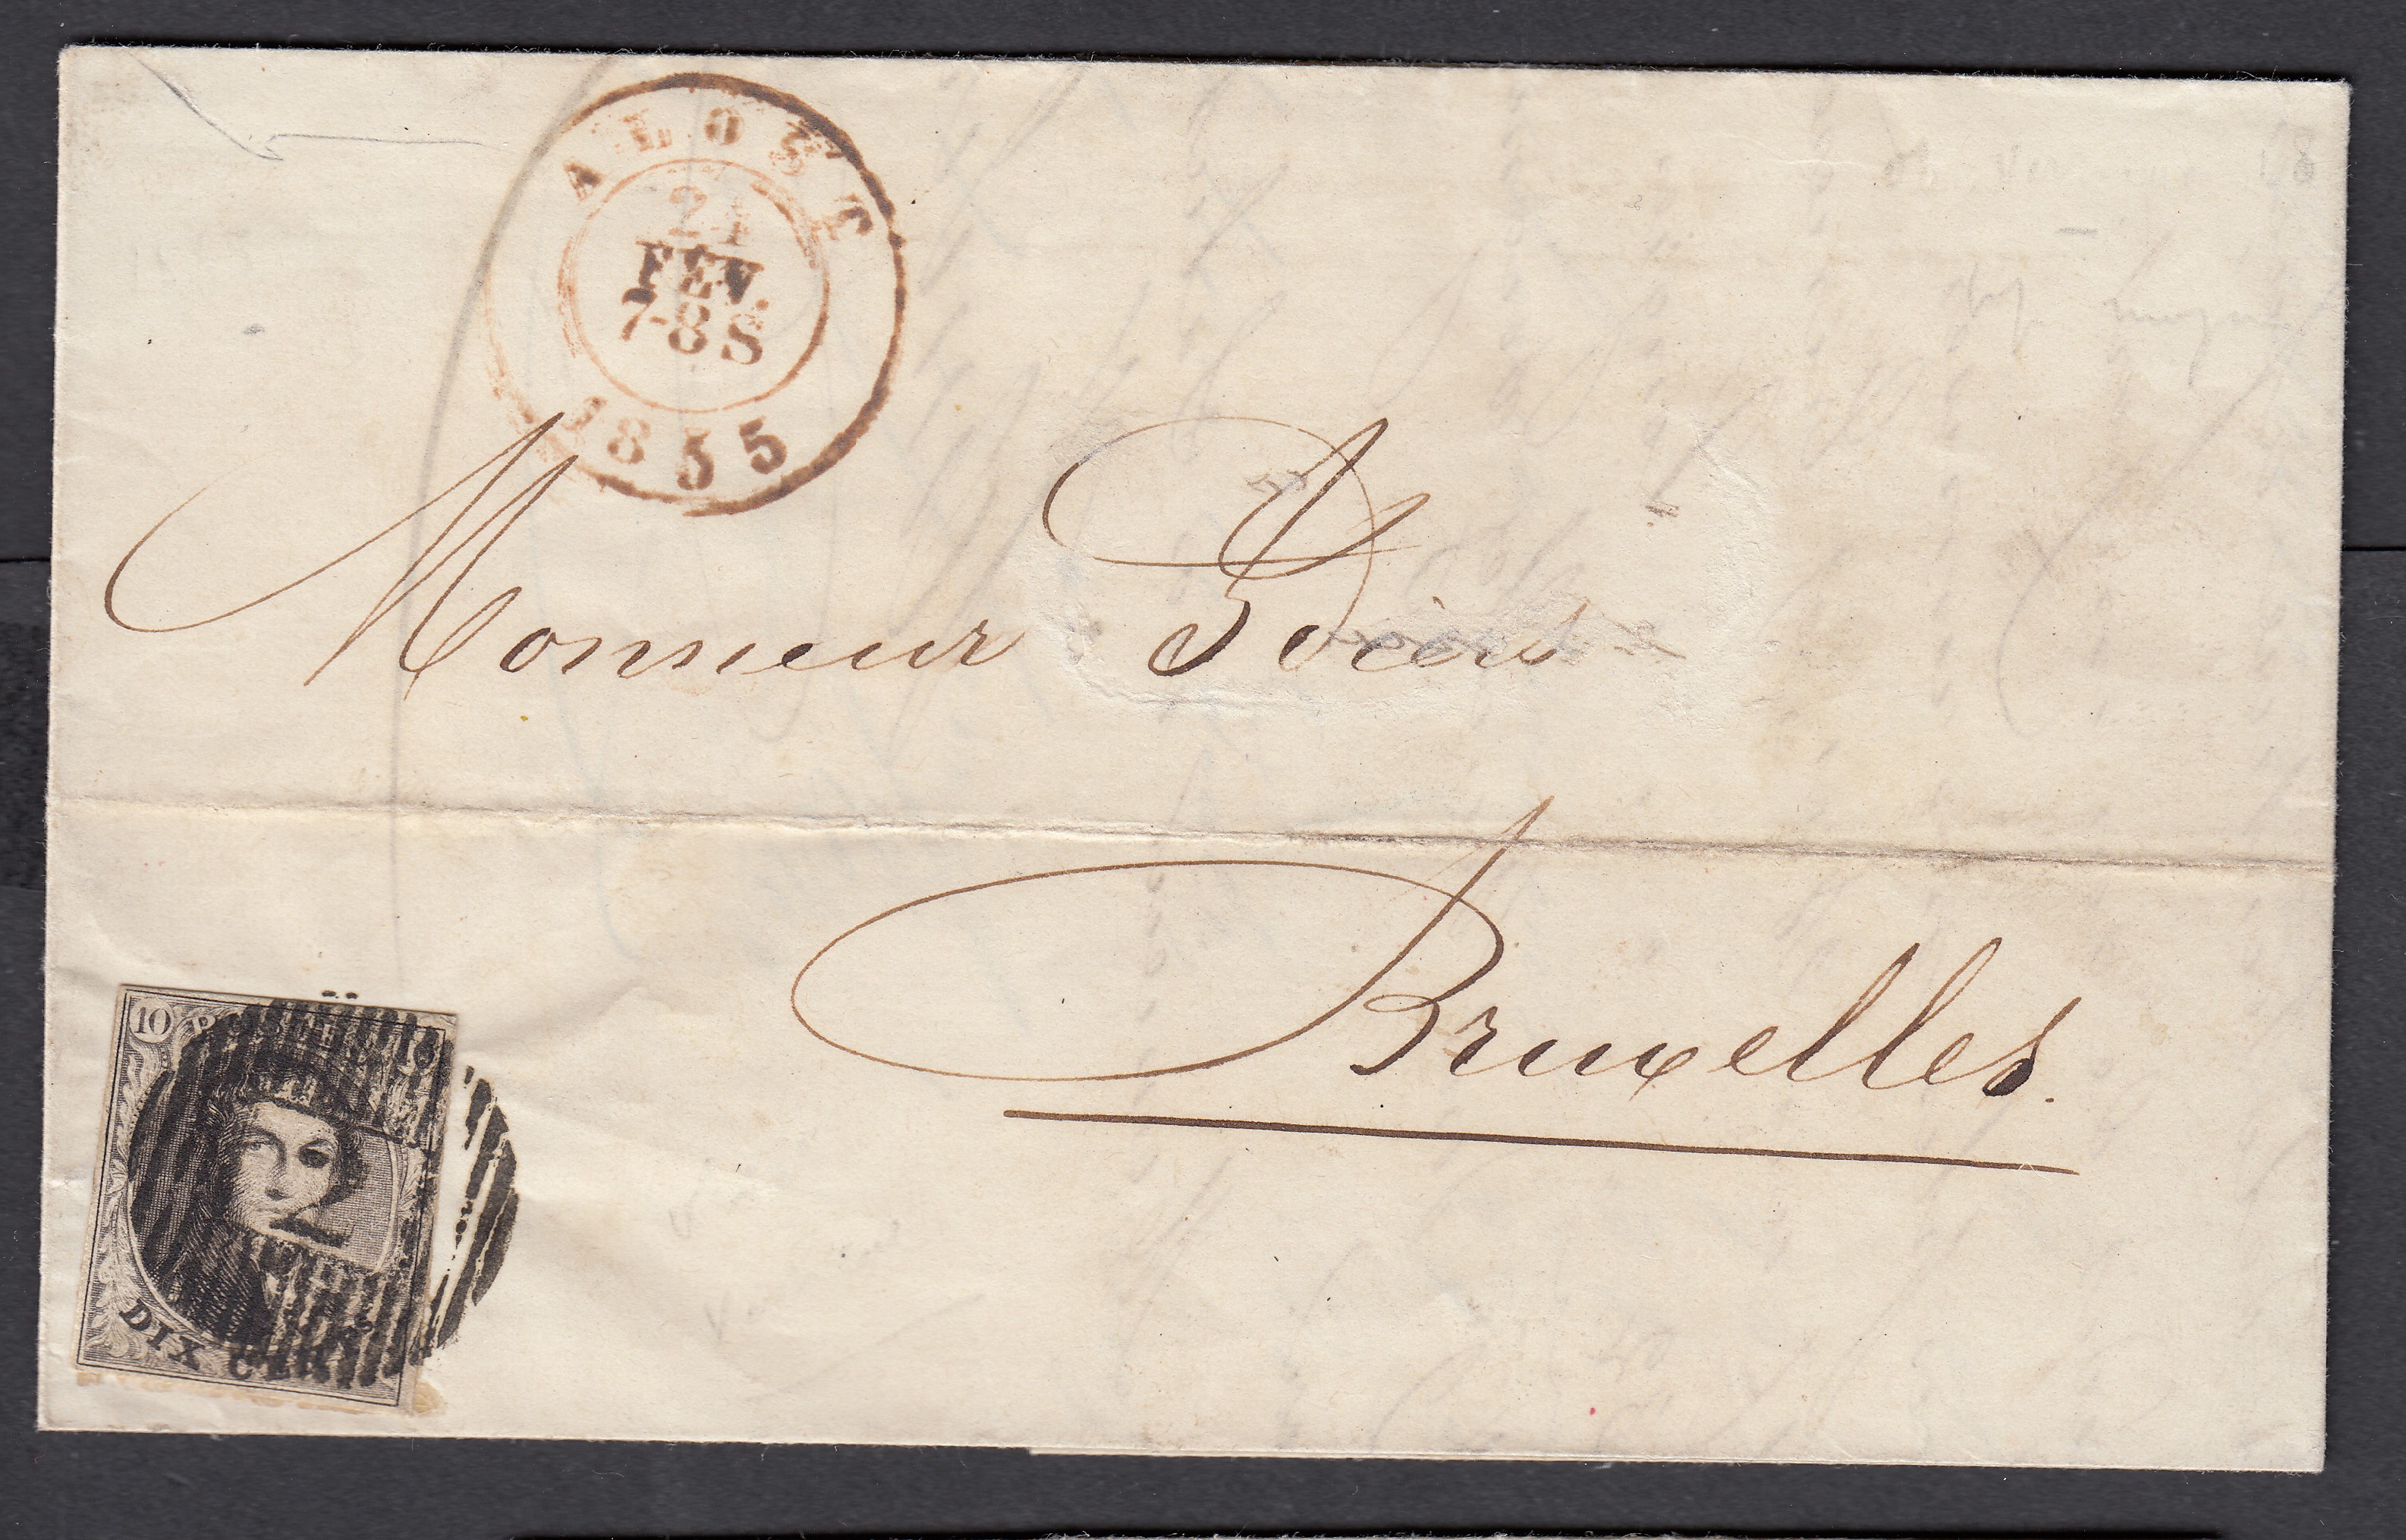 ALOST
24
FÉV.
7-8 S
1855
Monsieur
Bruxelles.
10 POSTES 10
2
DIX CENTS